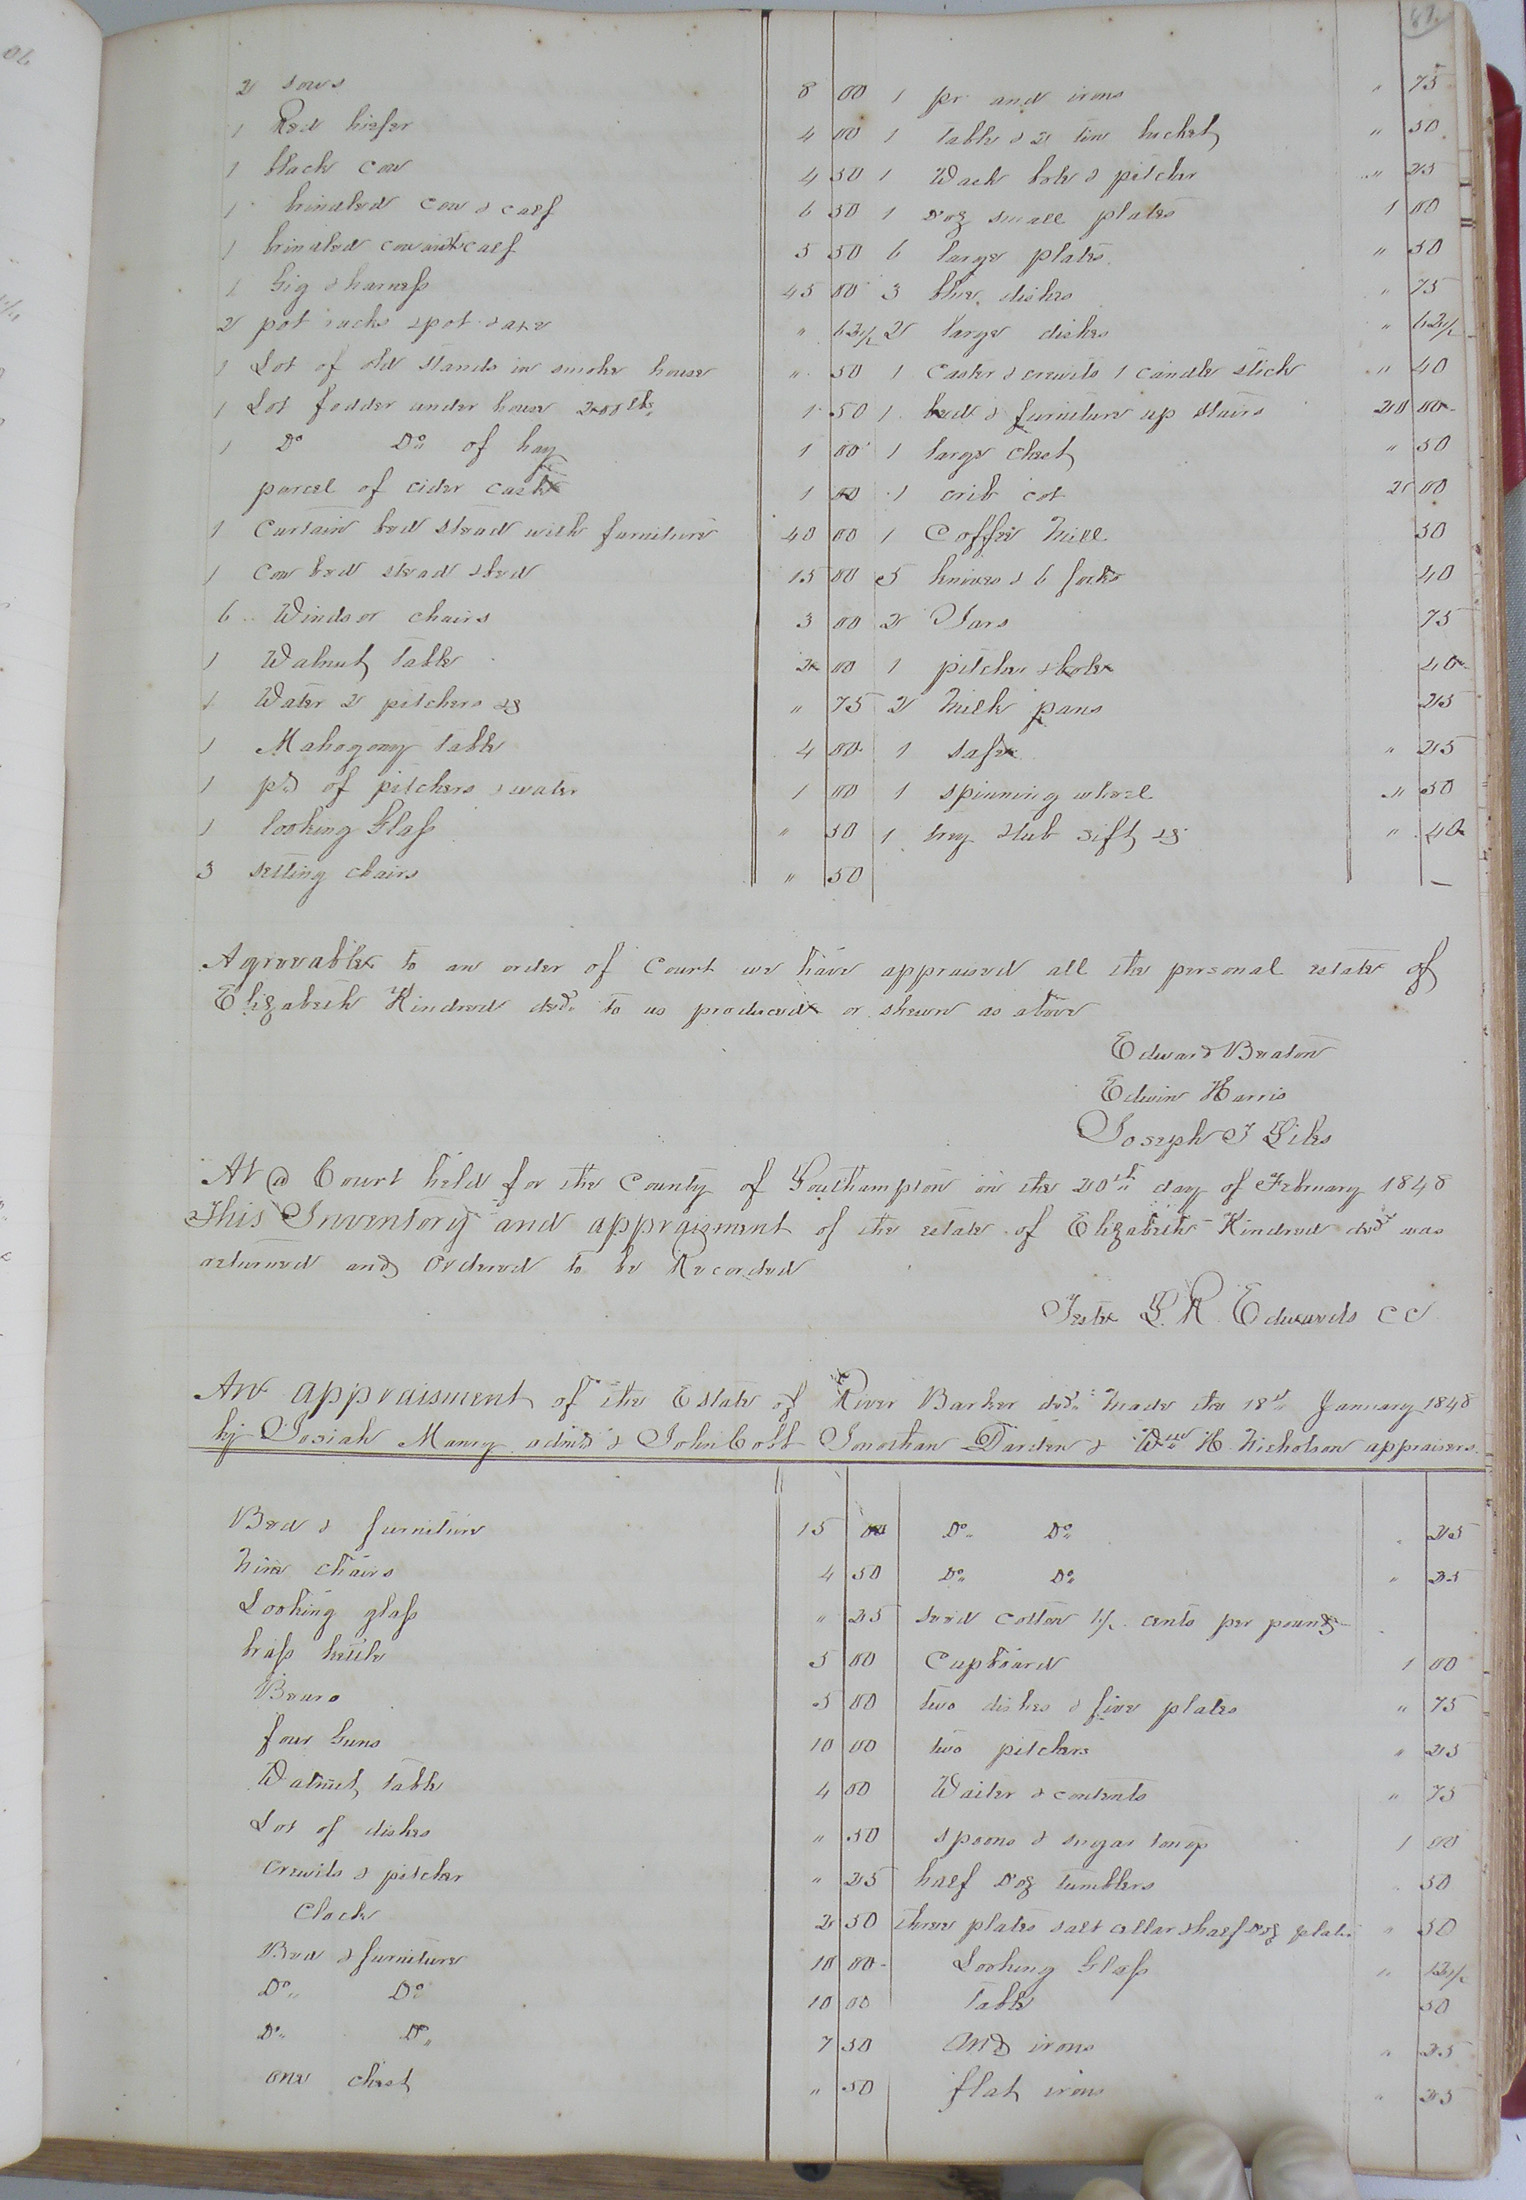 2 sows 8 00 1 pr and irons " 75
1 Red hiefer 4 00 1 table & 2 tin bucket " 50
1 black cow 4 50 1 Wash bole & pitcher " 25
1 brindled cow & calf 6 50 1 Doz small plates 1 00
1 brindled cow with calf 5 50 6 large plates " 50
1 Gig & harness 45 00 3 blue dishes " 75
2 pot racks & pot & axe " 62 1/2 2 large dishes " 62 1/2
1 Lot of old stands in smoke house " 50 1 Caster & crewits 1 candle stick " 40
1 Lot fodder under house 200 lbs 1 50 1 bed & furniture up stairs 20 00
1 Do Do of hay 1 00 1 large chest " 50
parcel of cider cask 1 00 1 crib cot 2 00
1 Curtain bed stead with furniture 40 00 1 Coffee Mill 50
1 Cow bed stead & bed 15 00 5 knives & 6 forks 40
6 Windsor chairs 3 00 2 Jars 75
1 Walnut table 2 00 1 pitcher & bole 40
1 Water 2 pitchers &c " 75 2 Milk pans 25
1 Mahogony table 4 00 1 safe " 25
1 pd of pitchers & water 1 00 1 spinning wheel " 50
1 looking Glass " 50 1 trey & tub sift &c " 40
3 setting chairs " 50
Agreeable to an order of Court we have appraised all the personal estate of
Elizabeth Kindred decd. to us produced or shewn as above
Edward Beaton
Edwin Harris
Joseph J Giles
At a Court held for the County of Southampton on the 20th day of February 1848
This Inventory and appraizment of the estate of Elizabeth Kindred decd was
returned and Ordered to be Recorded
Teste L. R. Edwards CC
An appraisment of the Estate of River Barker decd. Made the 18th January 1848
by Josiah Manry admr & John Cobb Jonathan Darden & Wm H Nicholson appraisers
Bed & furniture 15 00 Do Do " 25
Nine chairs 4 50 Do Do " 25
Looking glass " 25 seed cotton 1 1/2 cents per pound
brass kettle 5 00 Cupboard 1 00
Beauro 5 00 two dishes & five plates " 75
four Guns 10 00 two pitchers " 25
Walnut table 4 00 Waiter & contents " 75
Lot of dishes " 50 spoons & sugar tongs 1 00
Crewits & pitcher " 25 half Doz tumblers 50
Clock 2 50 three plates salt cellar & half Doz plates " 50
Bed & furniture 10 00 Looking Glass " 12 1/2
Do Do 10 00 table 50
Do Do 7 50 And irons " 25
one chest " 50 flat irons " 25